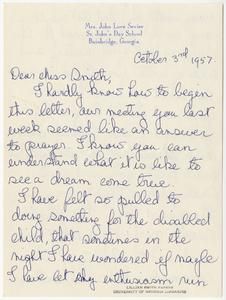 Mrs. John Lore Sevier
St. John's Day School
Bainbridge, Georgia
October 3rd 1957
Dear Miss Smith,
I hardly know how to begin
this letter, our meeting you last
week seemed like an answer
to prayer. I know you can
understand what it is like to
see a dream come true.
I have felt so pulled to
doing something for the disabled
child, that sometimes in the
night I have wondered if maybe
I have let my enthusiasm run
LILLIAN SMITH PAPERS
UNIVERSITY OF GEORGIA LIBRARIES